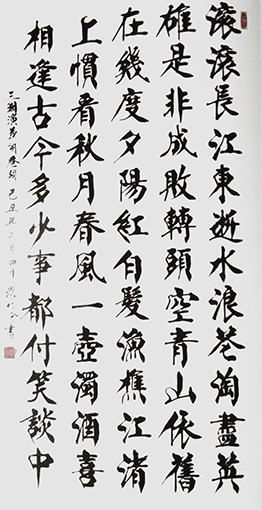 滾滾長江東逝水浪花淘盡英
雄是非成敗轉頭空青山依舊
在幾度夕陽紅白髮漁樵江渚
上慣看秋月春風一壺濁酒喜
相逢古今多少事都付笑談中
三國演義開卷詞 己丑